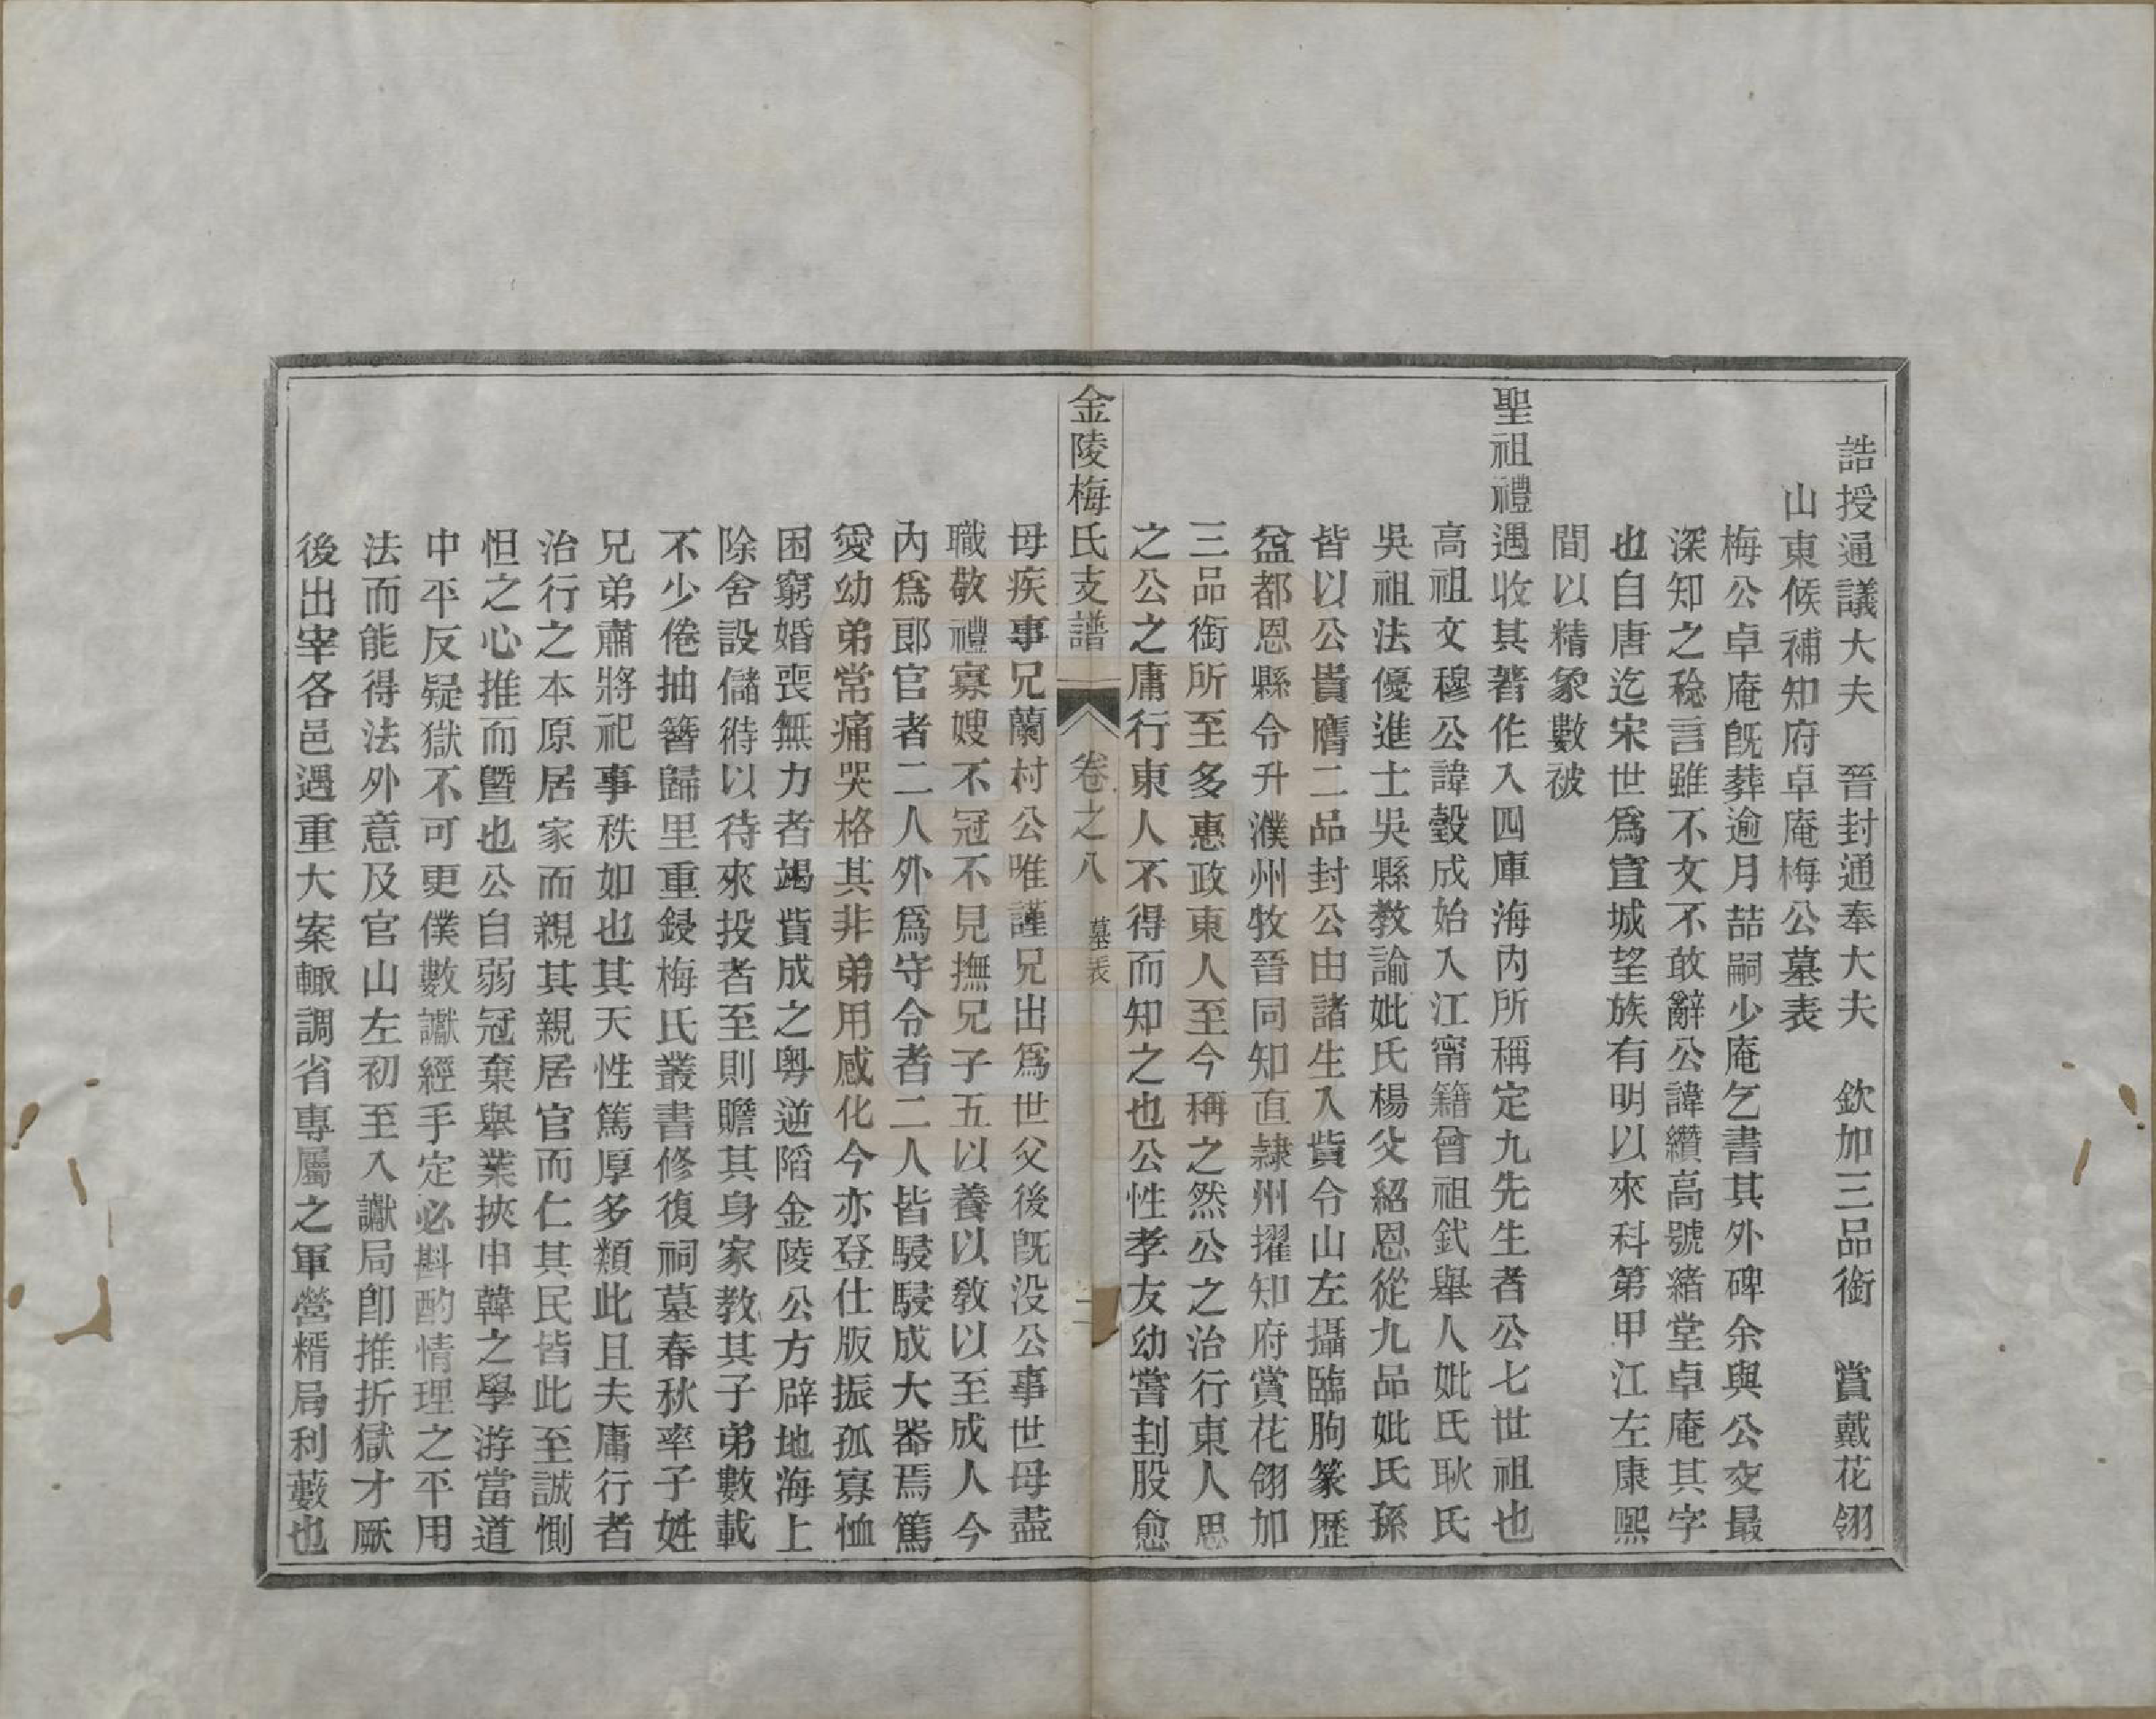 誥授通議大夫　晉封通奉大夫　欽加三品銜　賞戴花翎
山東候補知府卓庵梅公墓表
梅公卓庵旣葬逾月喆嗣少庵乞書其外碑余與公交最
深知之稔言雖不文不敢辭公諱纘高號緒堂卓庵其字
也自唐迄宋世爲宣城望族有明以來科第甲江左康熙
間以精象數被
聖祖禮遇收其著作入四庫海內所稱定九先生者公七世祖也
高祖文穆公諱瑴成始入江甯籍曾祖鈛舉人妣氏耿氏
吳祖法優進士吳縣教諭妣氏楊父紹恩從九品妣氏孫
皆以公貴膺二品封公由諸生入貲令山左攝臨朐篆歷
益都恩縣令升濮州牧晉同知直隸州擢知府賞花翎加
三品銜所至多惠政東人至今稱之然公之治行東人思
之公之庸行東人不得而知之也公性孝友幼嘗刲股愈
金陵梅氏支譜　卷之八　墓表　二
母疾事兄蘭村公唯謹兄出爲世父後旣没公事世母盡
職敬禮寡嫂不冠不見撫兄子五以養以教以至成人今
內爲郎官者二人外爲守令者二人皆駸駸成大器焉篤
愛幼弟常痛哭格其非弟用感化今亦登仕版振孤寡恤
困窮婚喪無力者竭貲成之粵逆陷金陵公方辟地海上
除舍設儲偫以待來投者至則贍其身家教其子弟數載
不少倦抽簪歸里重鋟梅氏叢書修復祠墓春秋率子姓
兄弟肅將祀事秩如也其天性篤厚多類此且夫庸行者
治行之本原居家而親其親居官而仁其民皆此至誠惻
怛之心推而曁也公自弱冠棄舉業挾申韓之學游當道
中平反疑獄不可更僕數讞經手定必斟酌情理之平用
法而能得法外意及官山左初至入讞局卽推折獄才厥
後出宰各邑遇重大案輒調省專屬之軍營糈局利藪也